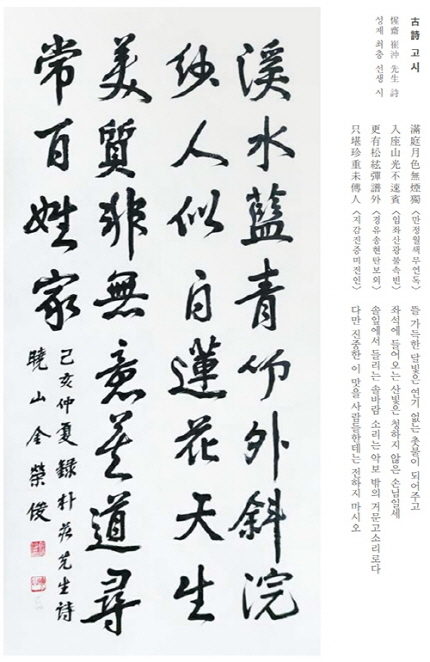 古詩 고시
惺齋 崔沖 先生 詩
성재 최충 선생 시
滿庭月色無煙獨 〈만정월색무연독〉 뜰 가득한 달빛은 연기 없는 촛불이 되어주고
入座山光不速賓 〈입좌산광불속빈〉 좌석에 들어오는 산빛은 청하지 않은 손님일세
更有松絃彈譜外 〈경유송현탄보외〉 솔잎에서 들리는 솔바람 소리는 악보 밖의 거문고소리로다
只堪珍重未傳人 〈지감진중미전인〉 다만 진중한 이 맛을 사람들한테는 전하지 마시오
溪水藍青竹外斜浣
紗人似白蓮花天生
美質非無意莫道尋
常百姓家
己亥仲夏錄朴 先生詩
曉山金榮俊